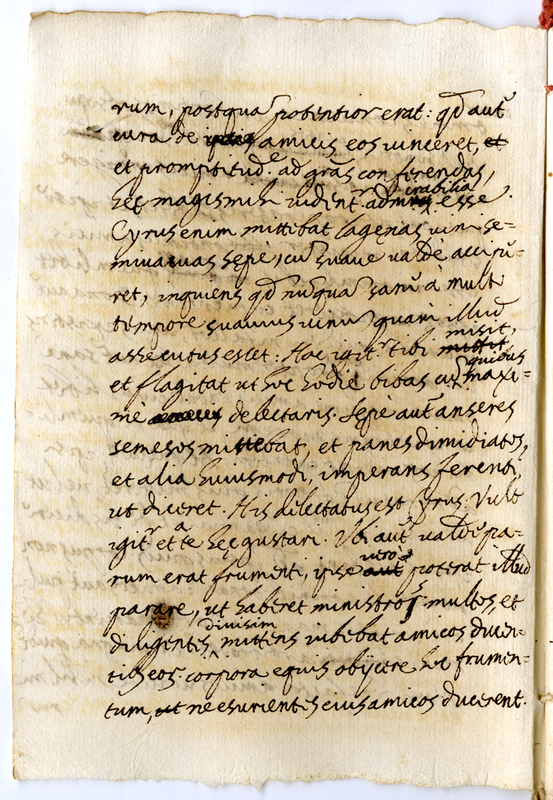 rum, postqua͂ potentior erat: qd̃ aut̃
cura de amicis eos vinceret, et
et promptitud.e ad gras̃ conferendas,
hęc magis mihi vident.r admirabilia esse.
Cyrus enim mittebat lagęnas vini se-
mivacuas sępè, cu͂ suave valdè accipe-
ret, inquiens qd̃ nu͂qua͂ sanè à multo
tempore suavius vinu͂ quam illud
assecutus esset: Hoc igit.r tibi mittit misit,
et flagitat ut hoc hodie bibas cu͂ quibus maxi-
mè delectaris. Sępè aut̃ anseres
semesos mittebat, et panes dimidiatos,
et alia huiusmodi, imperans ferenti,
ut diceret. His delectatus est Cyrus. Vult
igit.r et te hęc gustari. Ubi aut̃ valdè pa-
rum erat frumenti, ipse aut̃ verò poterat illud
parare, ut haberet ministros multos, et
diligentes, divisim mittens iubebat amicos ducen-
tibus eos corpora equis obijcere hoc frumen-
tum, ut ne esurientes eius amicos ducerent.